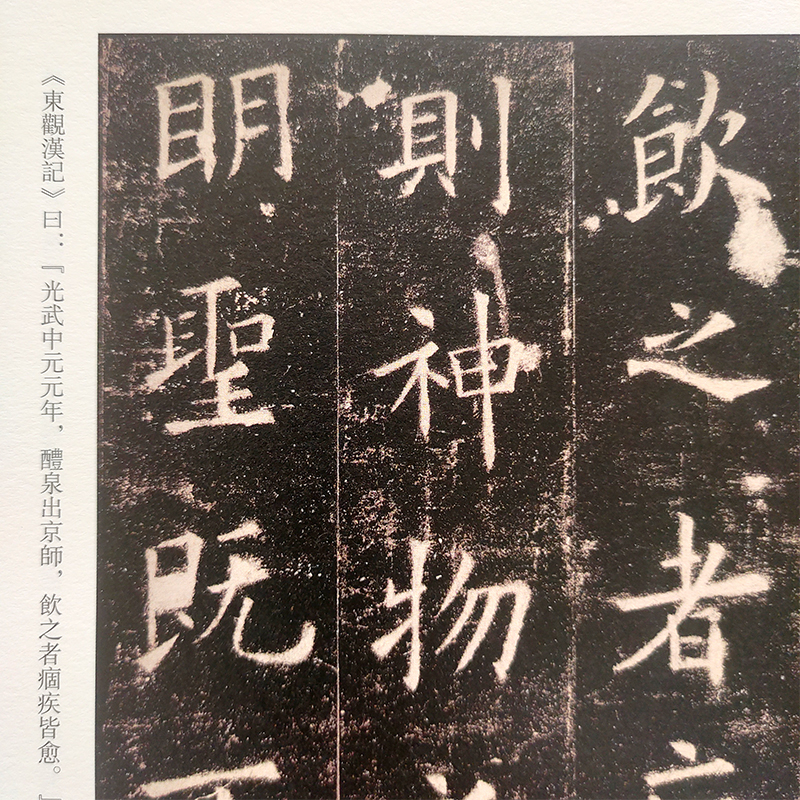 飲之者
則神物
明聖既
《東觀漢記》曰：『光武中元元年，醴泉出京師，飲之者痼疾皆愈。』